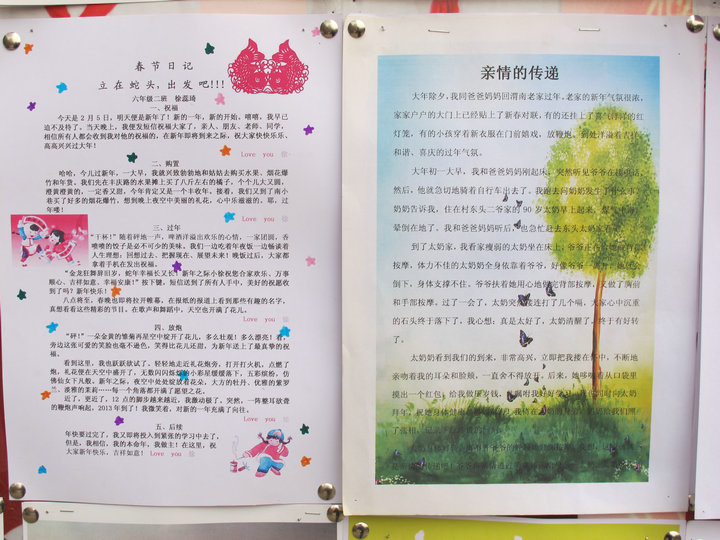 春节日记
立在蛇头,出发吧!!!
六年级二班 徐蕊琦
一、祝福
今天是2月5日,明天便是新年了!新的一年,新的开始。嘻嘻,我早已
迫不及待了。当天晚上,我便发短信祝福大家了,亲人、朋友、老师、同学,
相信所有人都会收到我对他的祝福的,在新年即将到来之际,祝大家快快乐乐、
高高兴兴过大年!
Love you
二、购置
哈哈,今儿过新年,一大早,我就兴致勃勃地和姑姑去购买水果、烟花爆
竹和年货。我们先在丰庆路的水果摊上买了八斤左右的橘子,个个儿大又圆,
橙黄橙黄的,一定香又甜,今年肯定又是一个丰收年。接着,我们又到了南小
巷买了好多的烟花爆竹,想到晚上夜空中美丽的礼花,心中乐滋滋的。耶,过
年喽!
Love you
三、过年
“干杯!”随着砰的一声,啤酒洋溢出欢乐的心情,一家团圆,香
喷喷的饺子是必不可少的美味。我们一边吃着年夜饭一边畅谈着
人生理想:回想过去、把握现在、展望未来!晚饭过后,大家都
拿着手机在发短信祝福。
“金龙狂舞辞旧岁,蛇年幸福任又长!新年之际小徐祝您合家欢乐、万事
顺心、吉祥如意、幸福安康!”按下键,短信送到了所有人手中,美好的祝愿收
到了吗?新年快乐!
八点将至,春晚也即将拉开帷幕,在报纸的报道上看到那些有趣的名字,
真想看看这些精彩的节目。在歌声和舞蹈中,天空也开满了花儿。
Love you
四、放炮
“砰!”一朵金黄的雏菊再星空中绽开了花儿,多么壮观!多么漂亮!看,
旁边这张可爱的笑脸也毫不逊色,笑得比花儿还甜,为新年送上了最真挚的祝
福。
看到这里,我也跃跃欲试了,轻轻地走近礼花炮旁,打开打火机,点燃了
炮,礼花便在天空中盛开了,无数闪闪烁烁的小彩星缓缓落下,五彩缤纷,仿
佛仙女下凡般。新年之际,夜空中处处绽放着花朵,大方的牡丹、优雅的紫罗
兰、淡雅的茉莉……每一个角落都开满了愿望之花。
近了,更近了,12点的脚步越来越近,我激动极了。突然,一阵整耳欲聋
的鞭炮声响起。2013年到了!我微笑着,对新的一年充满了向往。
Love you
五、后续
年快要过完了,我又即将投入到紧张的学习中去了,
但是,我相信,我的本命年,我做主!在这里,祝
大家新年快乐,吉祥如意!
Love you
亲情的传递
大年除夕,我同爸爸妈妈回渭南老家过年,老家的新年气氛很浓,
家家户户的大门上已经贴上了新春对联,有的还挂上了喜气洋洋的红
灯笼,有的小孩穿着新衣服在门前嬉戏、放鞭炮,到处洋溢着吉祥
和谐、喜庆的过年气氛。
大年初一大早,我和爸爸妈妈刚起床,突然听见爷爷在接电话,
然后,他就急切地骑着自行车出去了。我跑去问奶奶发生了什么事,
奶奶告诉我,住在村东头二爷家的90岁太奶早上起来,煤气中毒,
晕倒在地了。我和爸爸妈妈听后,也急忙赶去东头太奶家看
到了太奶家,我看家瘦弱的太奶坐在床上,爷爷正在给她做背部
按摩,体力不佳的太奶奶全身依靠着爷爷,好像爷爷一松手,她就会
倒下,身体支撑不住,爷爷扶着她用心地做完背部按摩,又做了胸前
和手部按摩,过了一会了,太奶突然接连打了几个嗝,大家心中沉重
的石头终于落下了,我心想:真是太好了,太奶清醒了,终于有好转
了。
太奶奶看到我们的到来,非常高兴,立即把我搂在怀中,不断地
亲吻着我的耳朵和脸颊,一直舍不得放开。后来,她哆嗦着从口袋里
摸出一个红包,给我做压岁钱,